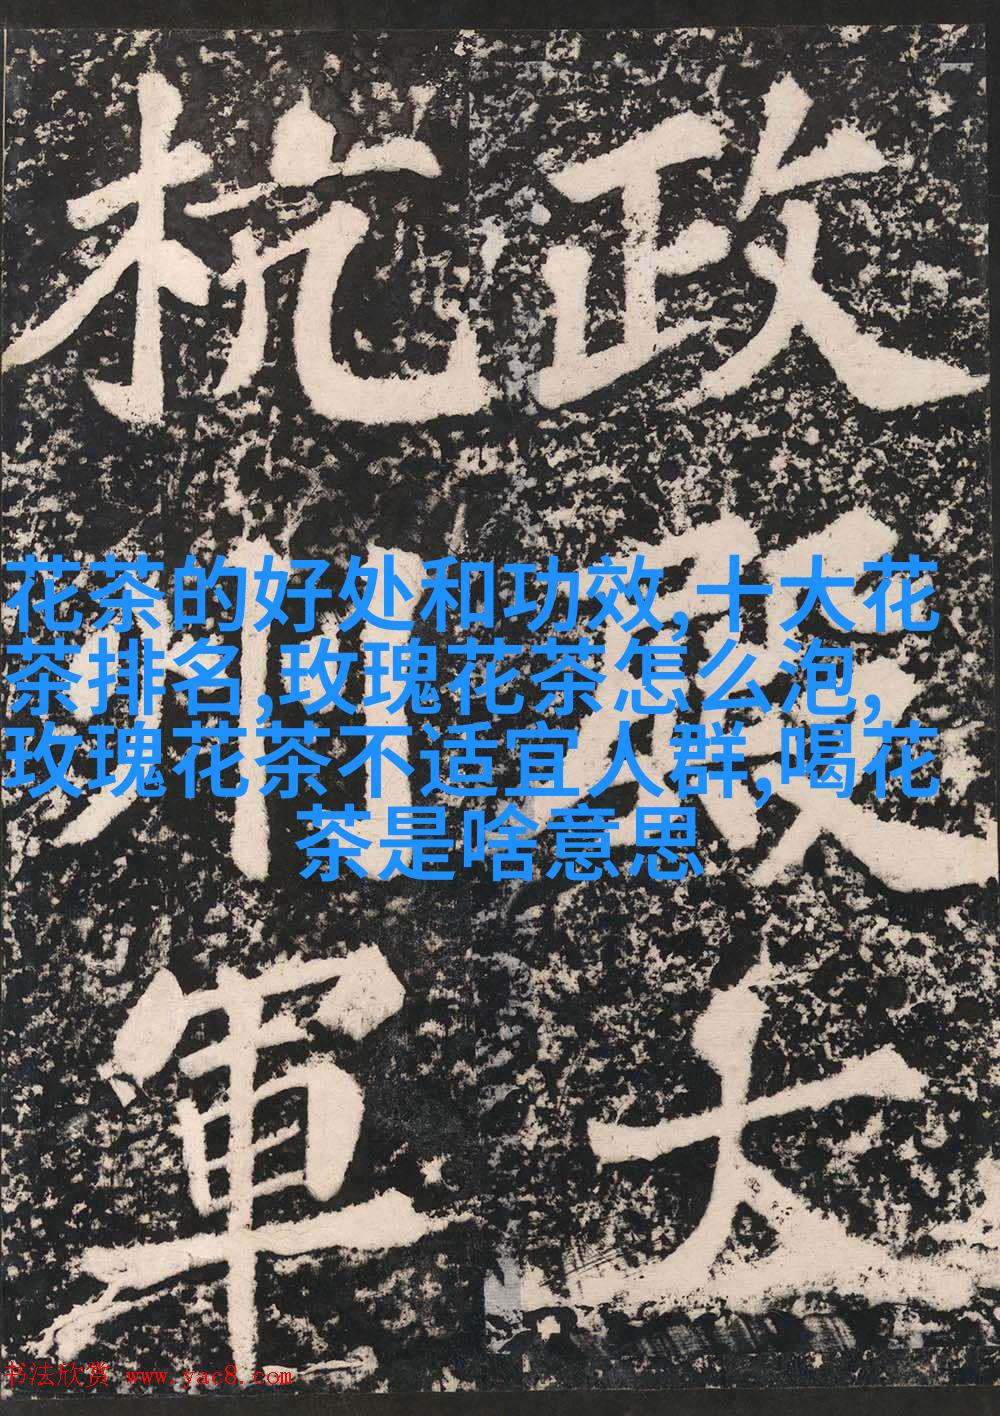 政殿大
杭州軍
花茶的好处和功效,十大花
茶排名,玫瑰花茶怎么泡,
玫瑰花茶不适宜人群,喝花
茶是啥意思
书法欣赏 www.yac8.com